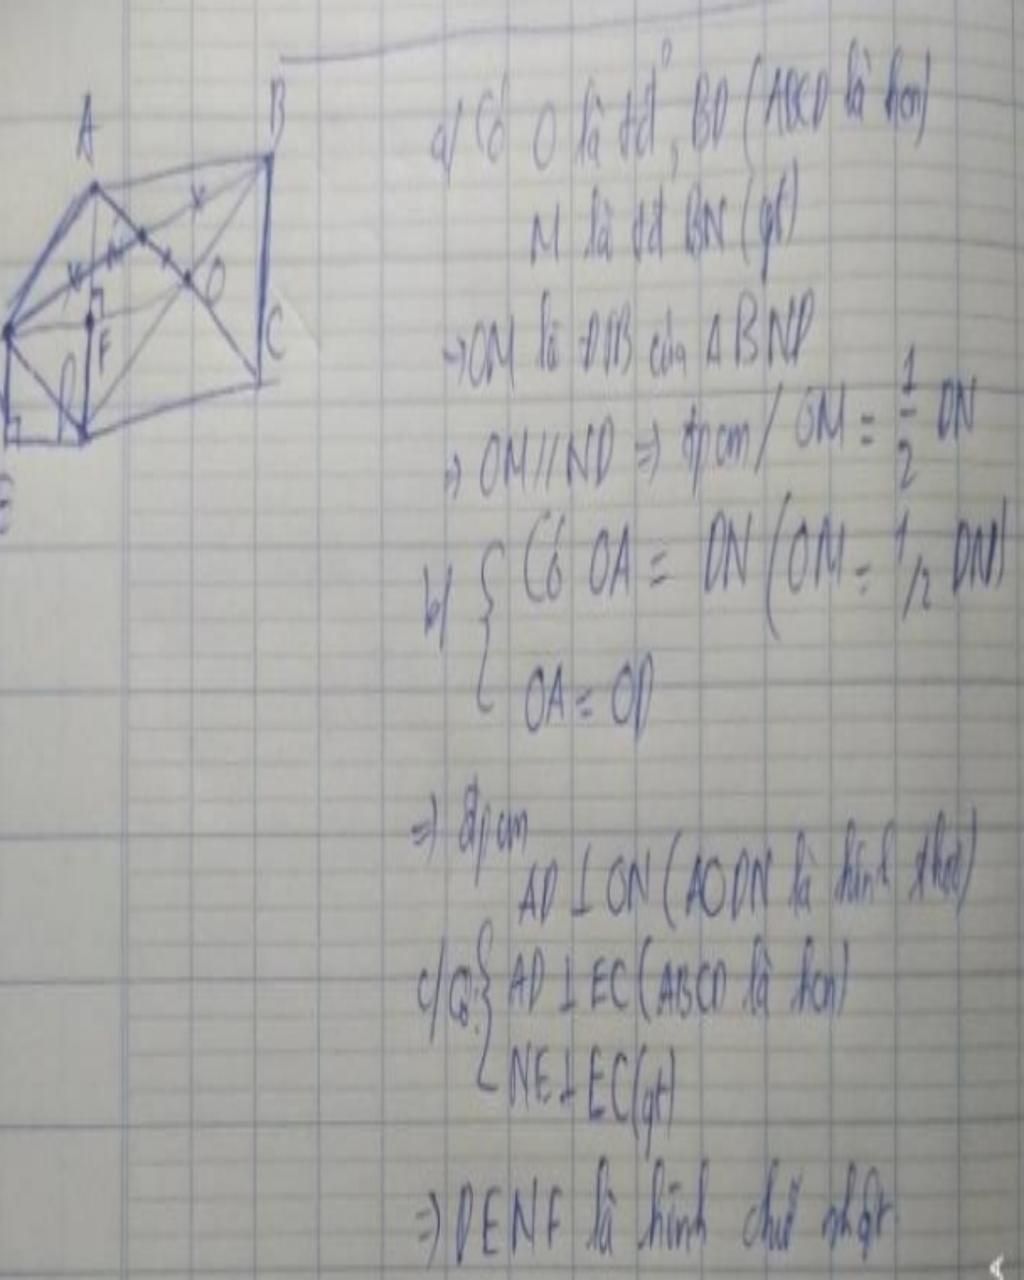 A
B
O
C
F
D
E
a/ Có O là tđ, BD (ABCD là hcn)
M là tđ BN (gt)
→ OM là ĐTB của Δ BND
→ OM // ND ⇒ đpcm / OM = 1/2 DN
b/ { Có OA = DN (OM = 1/2 DN)
OA = OD
⇒ đpcm
AD ⊥ ON (AODN là hình thoi)
c/ Có: { AD ⊥ EC (ABCD là hcn)
NE ⊥ EC (gt)
⇒ DENF là hình chữ nhật